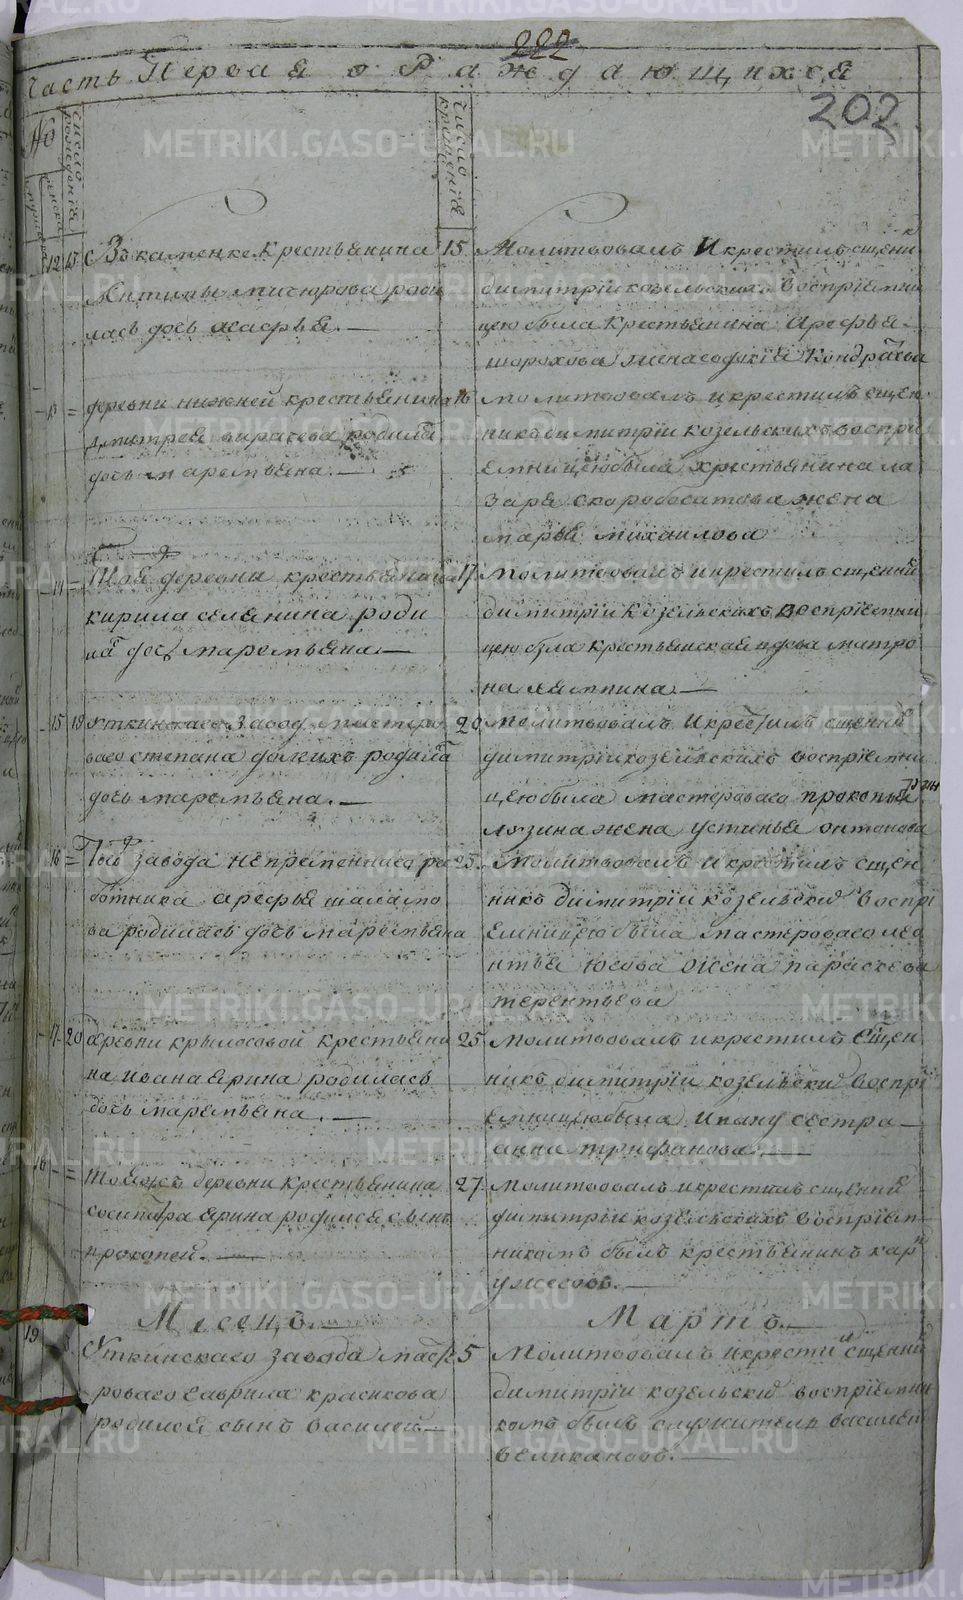 222
Часть Первая о Раждающихся
202
№
число рождения
число крещения
12 15 Крестьянина
родилась дочь
15 Молитвовалъ И крестилъ сщеник
димитрiи козельскихъ Восприемни
цею была Крестьянина Арефья
шорохова жена
13 = деревни нижней крестьянина
дмитрея родила
дочь маремьяна.
16 молитвовалъ и крестилъ сщен
никъ димитрiи козельскихъ воспри
емницею была крестьянина ла
заря скоробогатова жена
марья михаилова
14 = Тоя деревни крестьянина
кирила селянина роди
ла дочь маремьяна
17 молитвовалъ и крестилъ сщенник
димитрiи козельскихъ Восприемни
цею была крестьянская вдова матро
на лямпина
15 19 Уткинскаго Завод мастеро
ваго степана долгихъ родила
дочь маремьяна.
20 молитвовалъ И крестилъ сщенник
димитрiи козельскихъ восприемни
цею была мастероваго прокопья
лузина жена устинья онтонова
16 = Того завода непременнаго ра
ботника арефья шалами
ва родилась дочь маремьяна
23 Молитвовалъ и крестилъ сщен
никъ димитрiи козельскиi Воспрi
Емницею была мастероваго лео
нтья Юсова жена параскева
терентьева
17 20 деревни крылосовой крестьяни
на ивана ярина родилась
дочь маремьяна.
25 молитвовалъ и крестилъ Сщен
никъ димитрiи козельскиi Воспрi
емницею была Ивану сестра
анна трифанова
18 = тоя жъ деревни крестьянина
сосипатра ярина родился сынъ
прокопей.
27 молитвовалъ и крестилъ сщенник
димитрiи козельскихъ Восприем
никомъ былъ крестьянинъ карп
ужеговъ.
Месецъ. Мартъ.
19 Уткинскаго завода масте
роваго гаврила красикова
родился сынъ василей
5 Молитвовалъ и крести сщенник
димитрiи козельскиi восприемни
комъ былъ служитель василей
великановъ.
METRIKI.GASO-URAL.RU